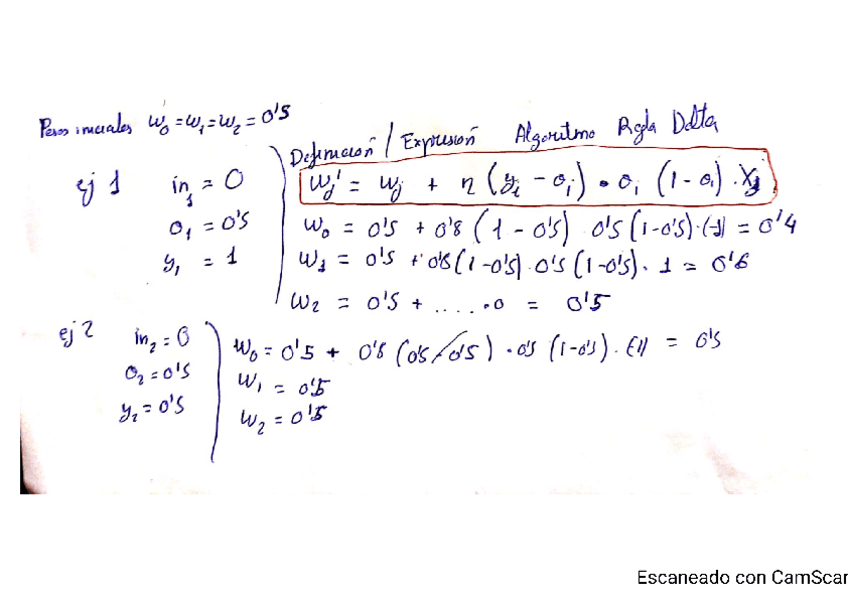 Pesos iniciales w₀ = w₁ = w₂ = 0'5
Definición / Expresión Algoritmo Regla Delta
wⱼ' = wⱼ + η (yᵢ - oᵢ) · oᵢ (1 - oᵢ) · xⱼ
ej 1
in₁ = 0
o₁ = 0'5
y₁ = 1
w₀ = 0'5 + 0'8 (1 - 0'5) · 0'5 (1-0'5) · (-1) = 0'4
w₁ = 0'5 + 0'8 (1-0'5) · 0'5 (1-0'5) · 1 = 0'6
w₂ = 0'5 + ..... · 0 = 0'5
ej 2
in₂ = 0
o₂ = 0'5
y₂ = 0'5
w₀ = 0'5 + 0'8 (0'5 - 0'5) · 0'5 (1-0'5) · (-1) = 0'5
w₁ = 0'5
w₂ = 0'5
Escaneado con CamScan